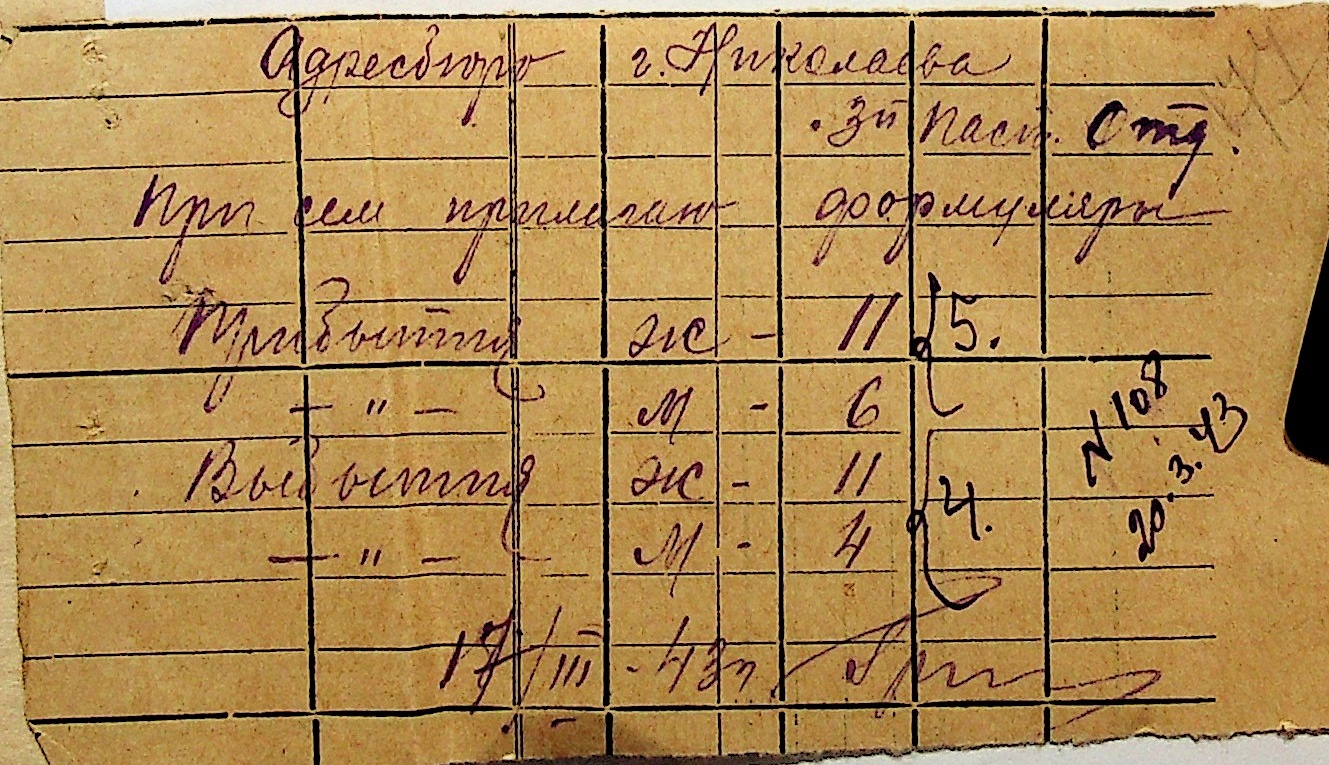 Адресбюро г. Николаева
3й Пасп. Отд.
При сем прилагаю формуляры
Прибытия ж - 11
5.
— " — м - 6
Выбытия ж - 11
4.
— " — м - 4
N 108
20.3.43
17/III - 43г.